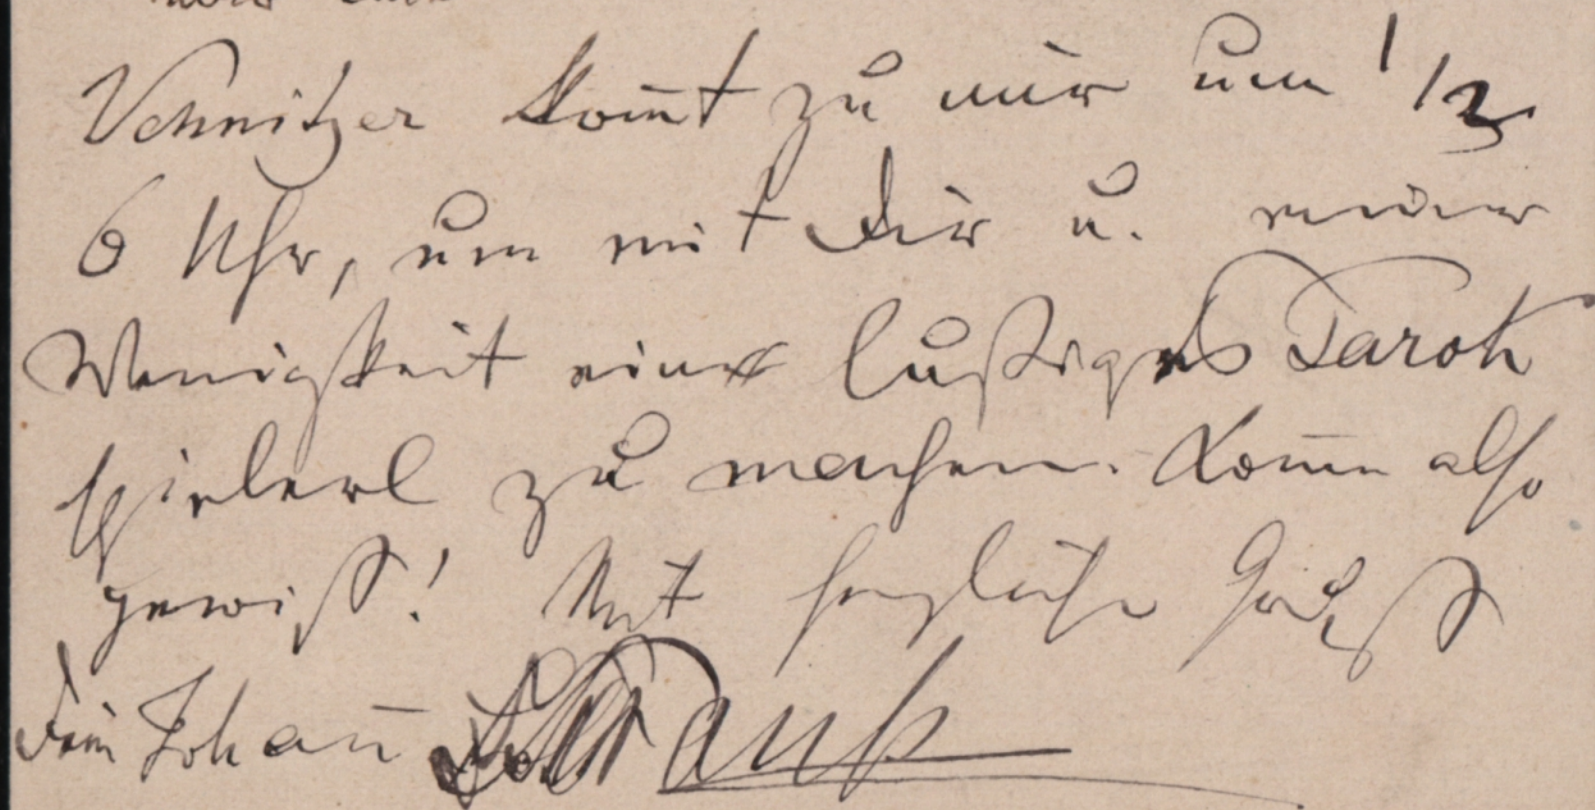 Schnitzer kom̄t zu mir um 1/2
6 Uhr, um mit Dir u. meiner
Wenigkeit ein lustiges Tarok
spielerl zu machen. Kom̄e also
gewiß! Mit herzliche Grüß
Dein Johan̄ Strauß